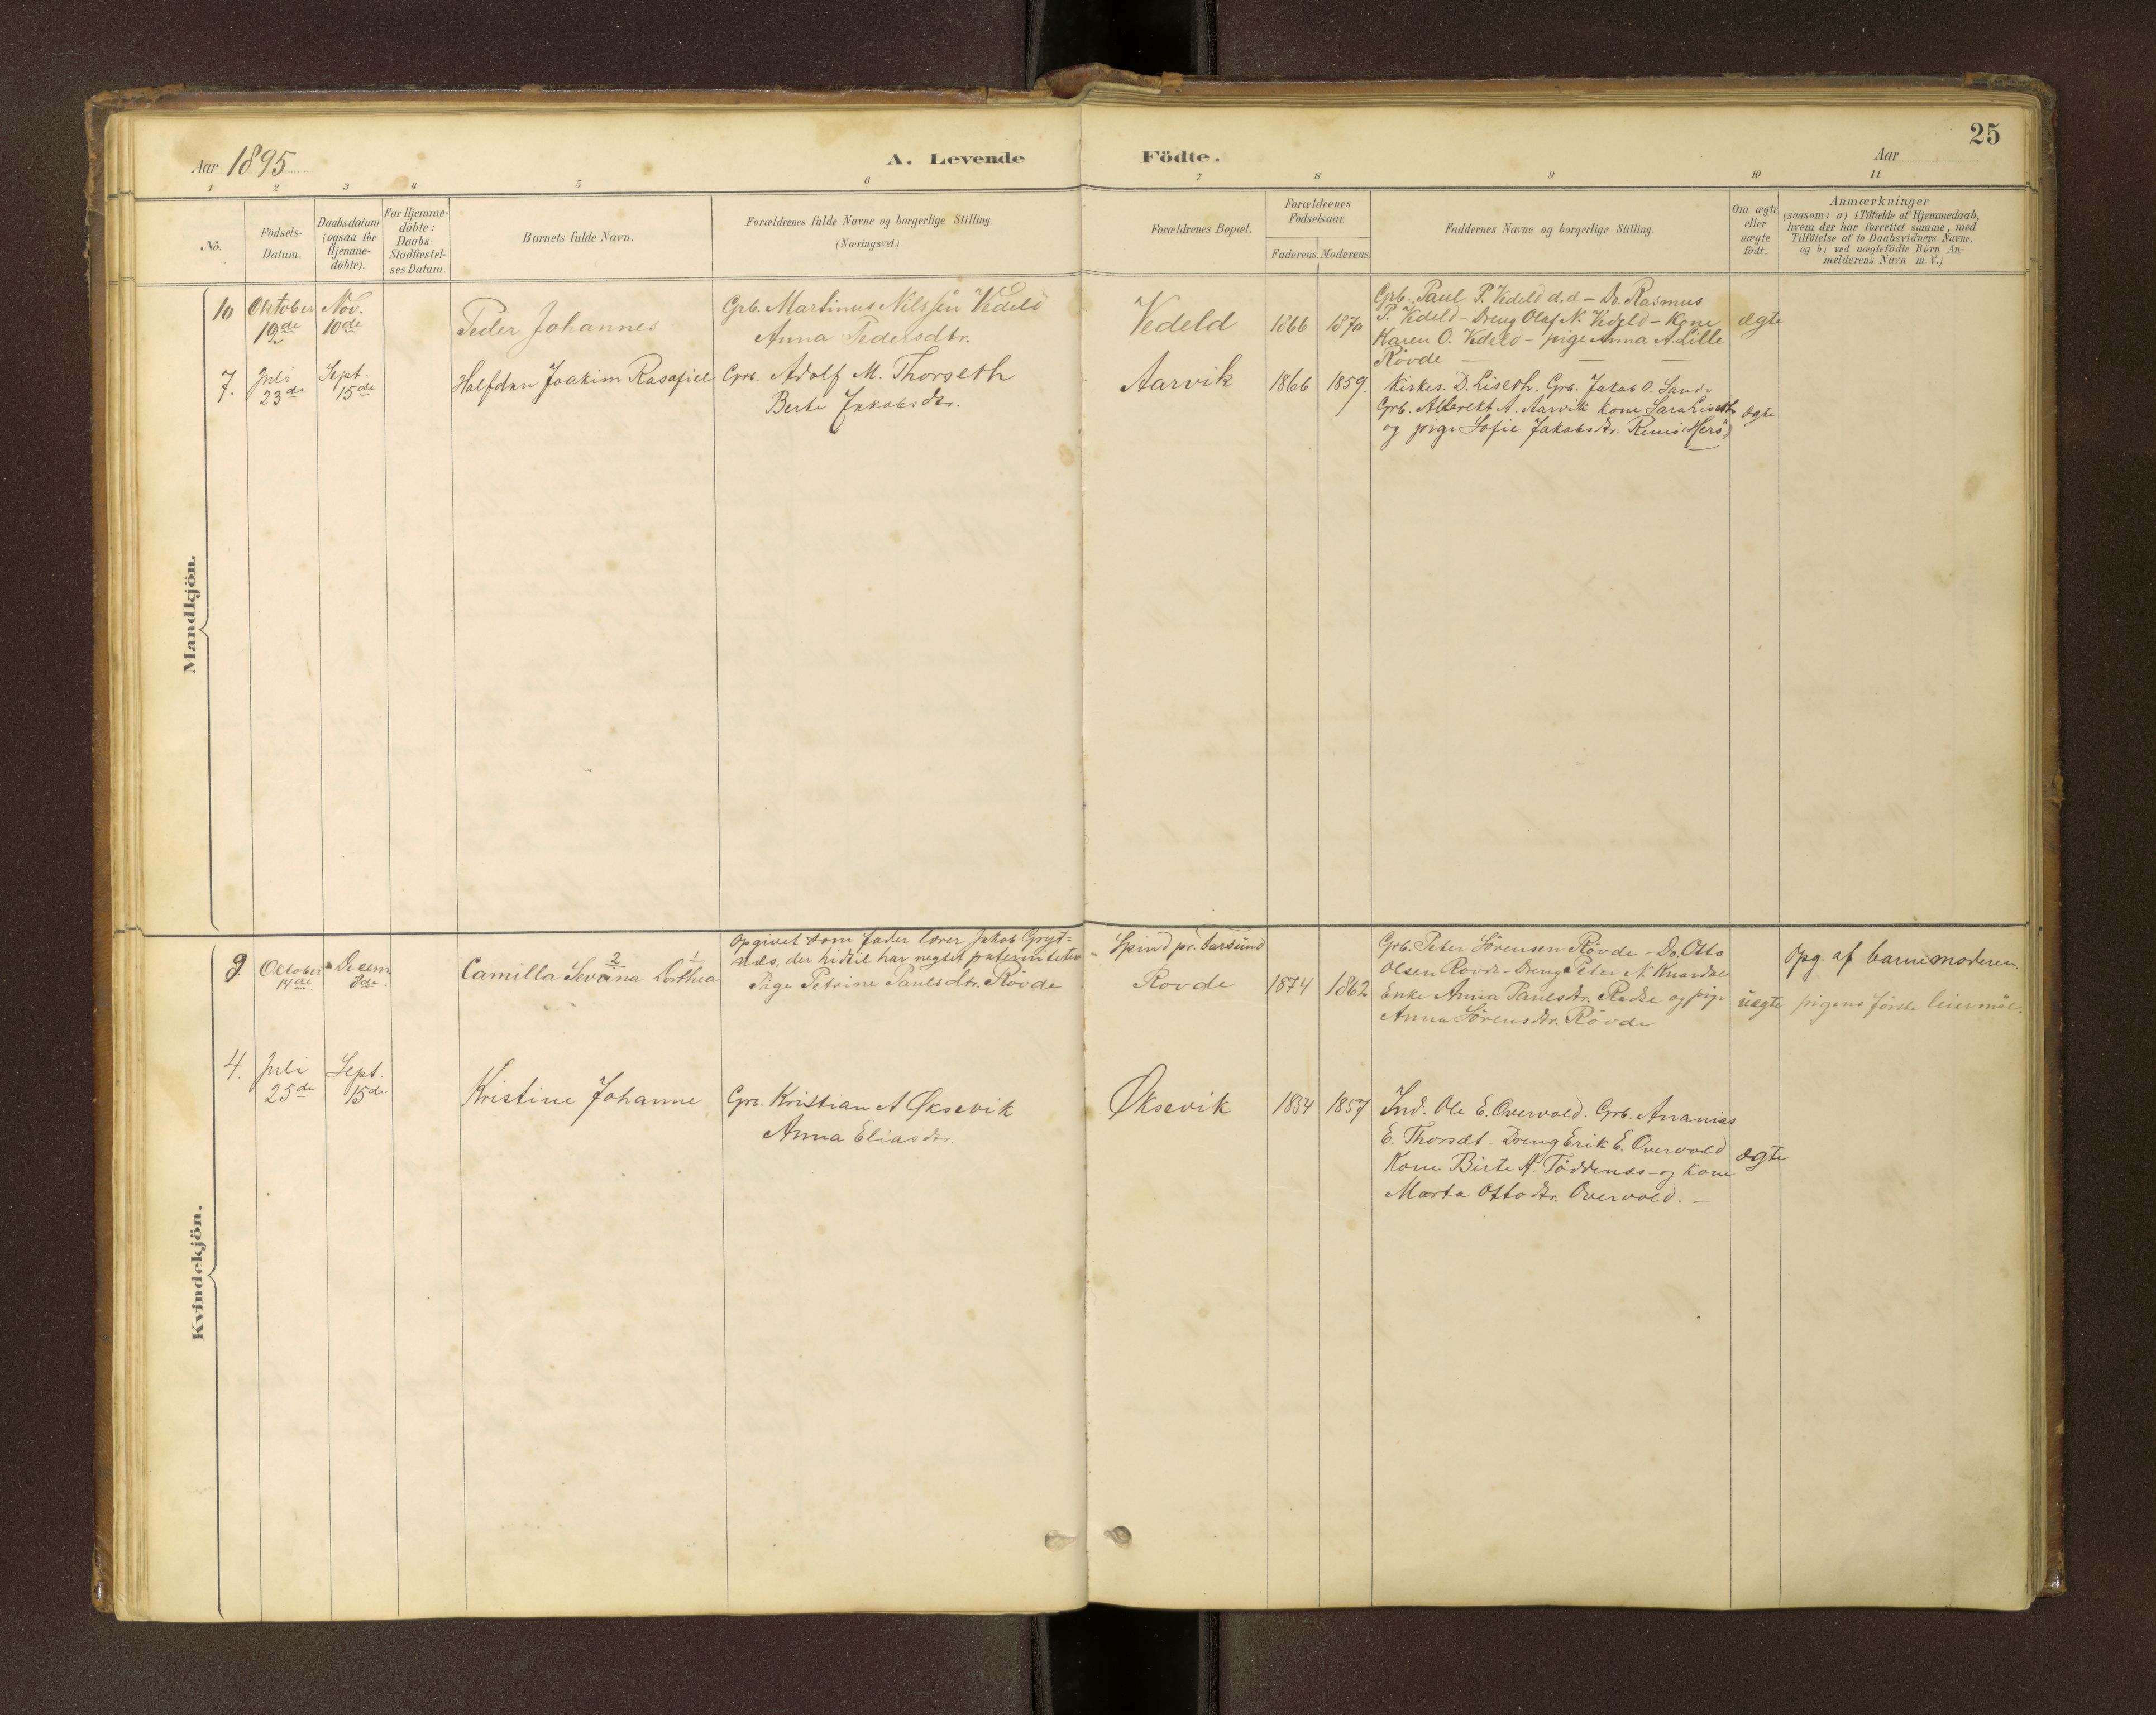 25
Aar 1895
A. Levende Födte.
Aar
1 2 3 4 5 6 7 8 9 10 11
Nö.
Födsels-Datum.
Daabsdatum (ogsaa for Hjemme-döbte).
For Hjemme-döbte: Daabs-Stadfæstel-ses Datum.
Barnets fulde Navn.
Forældrenes fulde Navne og borgerlige Stilling.
(Næringsvei.)
Forældrenes Bopæl.
Forældrenes Födselsaar.
Faderens. Moderens.
Faddernes Navne og borgerlige Stilling.
Om ægte eller uægte födt.
Anmærkninger
(saasom: a) i Tilfælde af Hjemmedaab,
hvem der har forrettet samme, med
Tilföielse af to Daabsvidners Navne,
og b) ved uægtefödte Börn An-
melderens Navn m. V.)
Mandkjön.
10 Oktober 19de Nov. 10de
Peder Johannes
Grb. Martinus Nilssen Vedeld
Anna Pedersdtr.
Vedeld 1866 1870
Grb. Paul P. Vedeld d.d - Do. Rasmus
P. Vedeld - Dreng Olaf N. Vedeld - Kone
Karen O. Vedeld - pige Anna A. Lille
Rövde
ægte
7. Juli 23de Sept. 15de
Halfdan Joakim Rasafiel
Grb. Adolf M. Thorseth
Berte Jakobsdtr.
Aarvik 1866 1859.
Kirkes. D. Liseth. Grb. Jakob O. Sande
Grb. Albrekt A. Aarvik Kone Sara Liseth
og pige Sofie Jakobsdtr. (Herö)
ægte
Kvindekjön.
9. Oktober 14de Decem 8de.
Camilla Sevrina Dorthea
2 1
Opgivet som fader lærer Jakob Gryt=
næs, der hidtil har negtet paterniteten
Pige Petrine Paulsdtr. Rövde
Spind pr. Farsund
Rovde 1874 1862
Grb. Peter Sörensen Rövde - Do. Otto
Olsen Rovde - Dreng Peter N. Knardal
Enke Anna Paulsdtr. og pige
Anna Sörensdtr. Rövde
uægte
Opg. af barnemoderen.
pigens förste leiermål.
4. Juli 25de Sept. 15de
Kristine Johanne
Grb. Kristian A Øksevik
Anna Eliasdtr.
Øksevik 1854 1857
Ind. Ole E. Overvold. Grb. Ananias
E. Thorsæt. Dreng Erik E. Overvold
Kone Birte A. Töddenæs - og Kone
Marta Ottodtr. Overvold. -
ægte